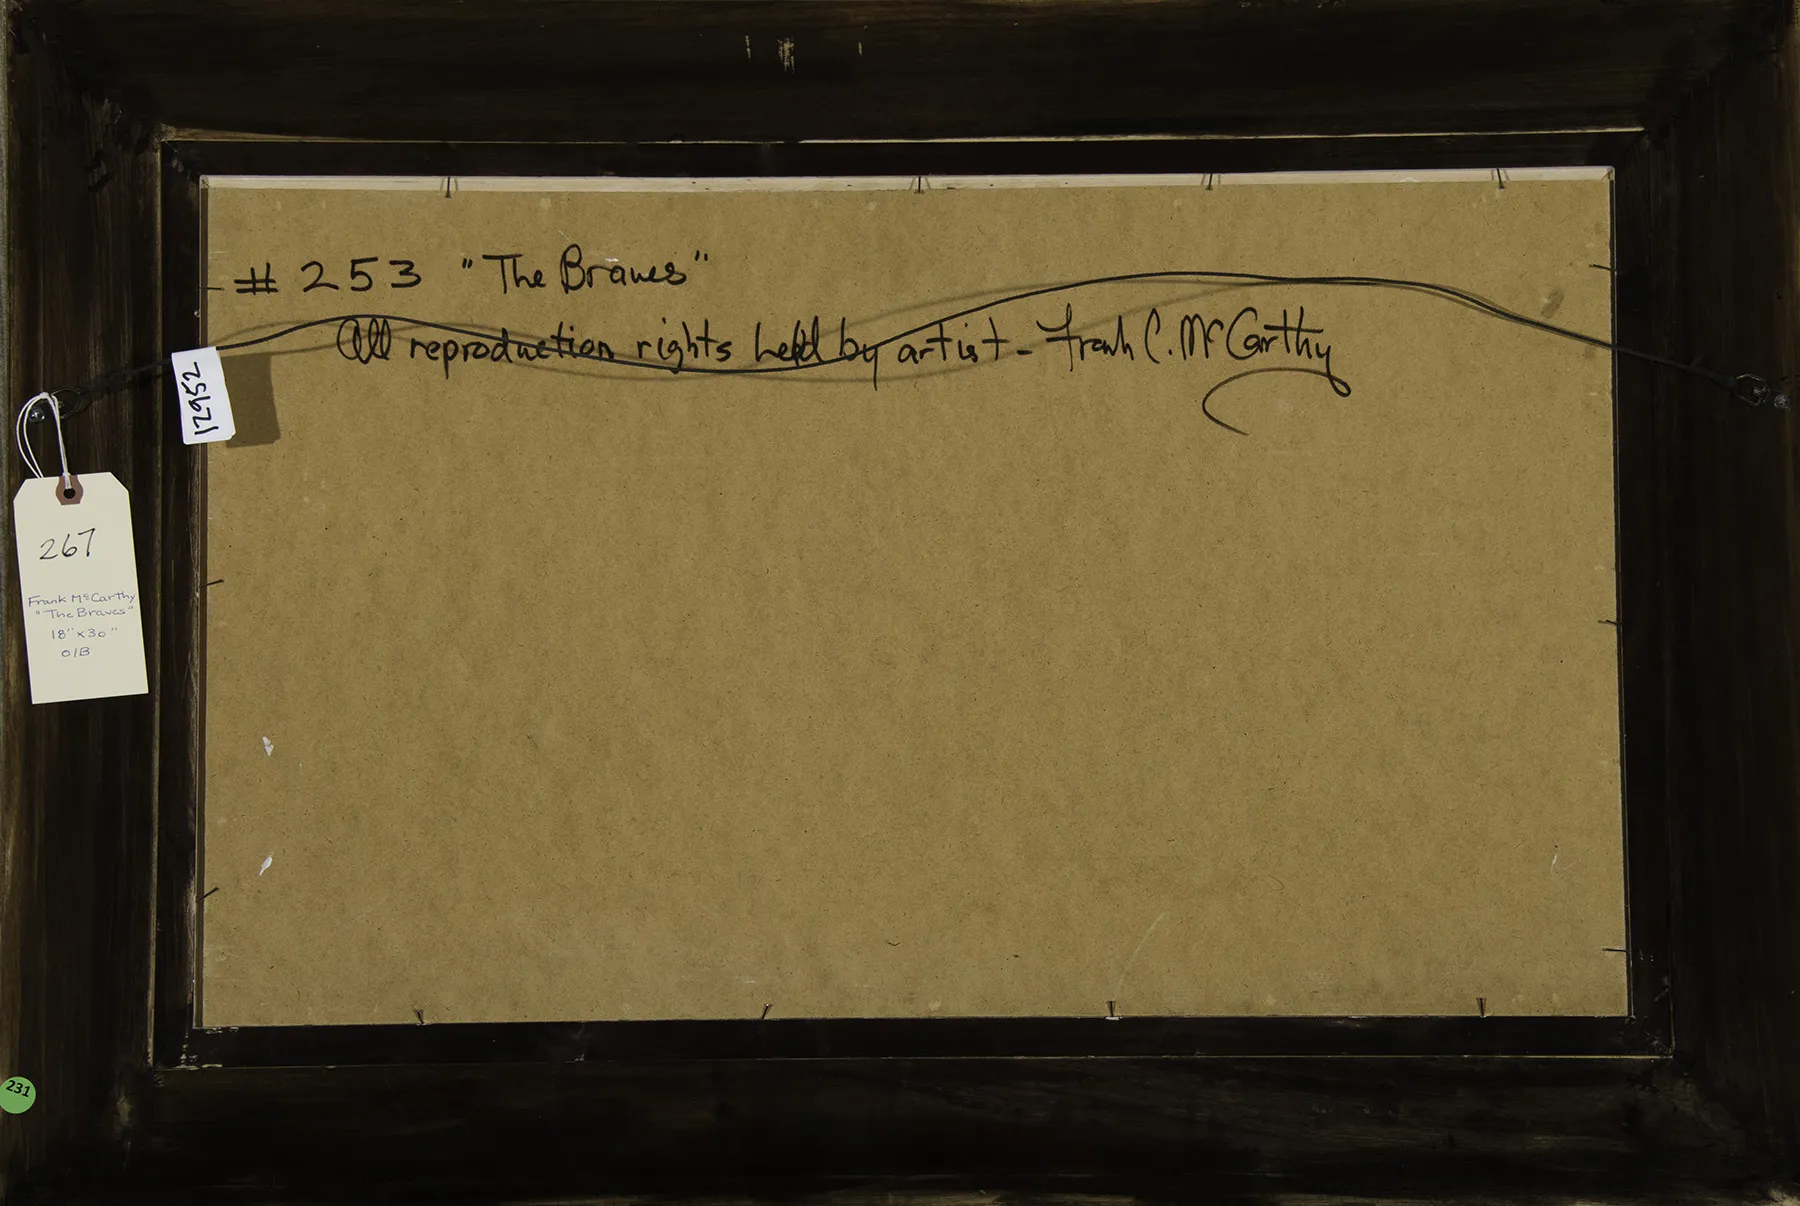 # 253 "The Braves"
All reproduction rights held by artist - Frank C. McCarthy
12952
267
Frank McCarthy
"The Braves"
18" x 30"
O/B
231